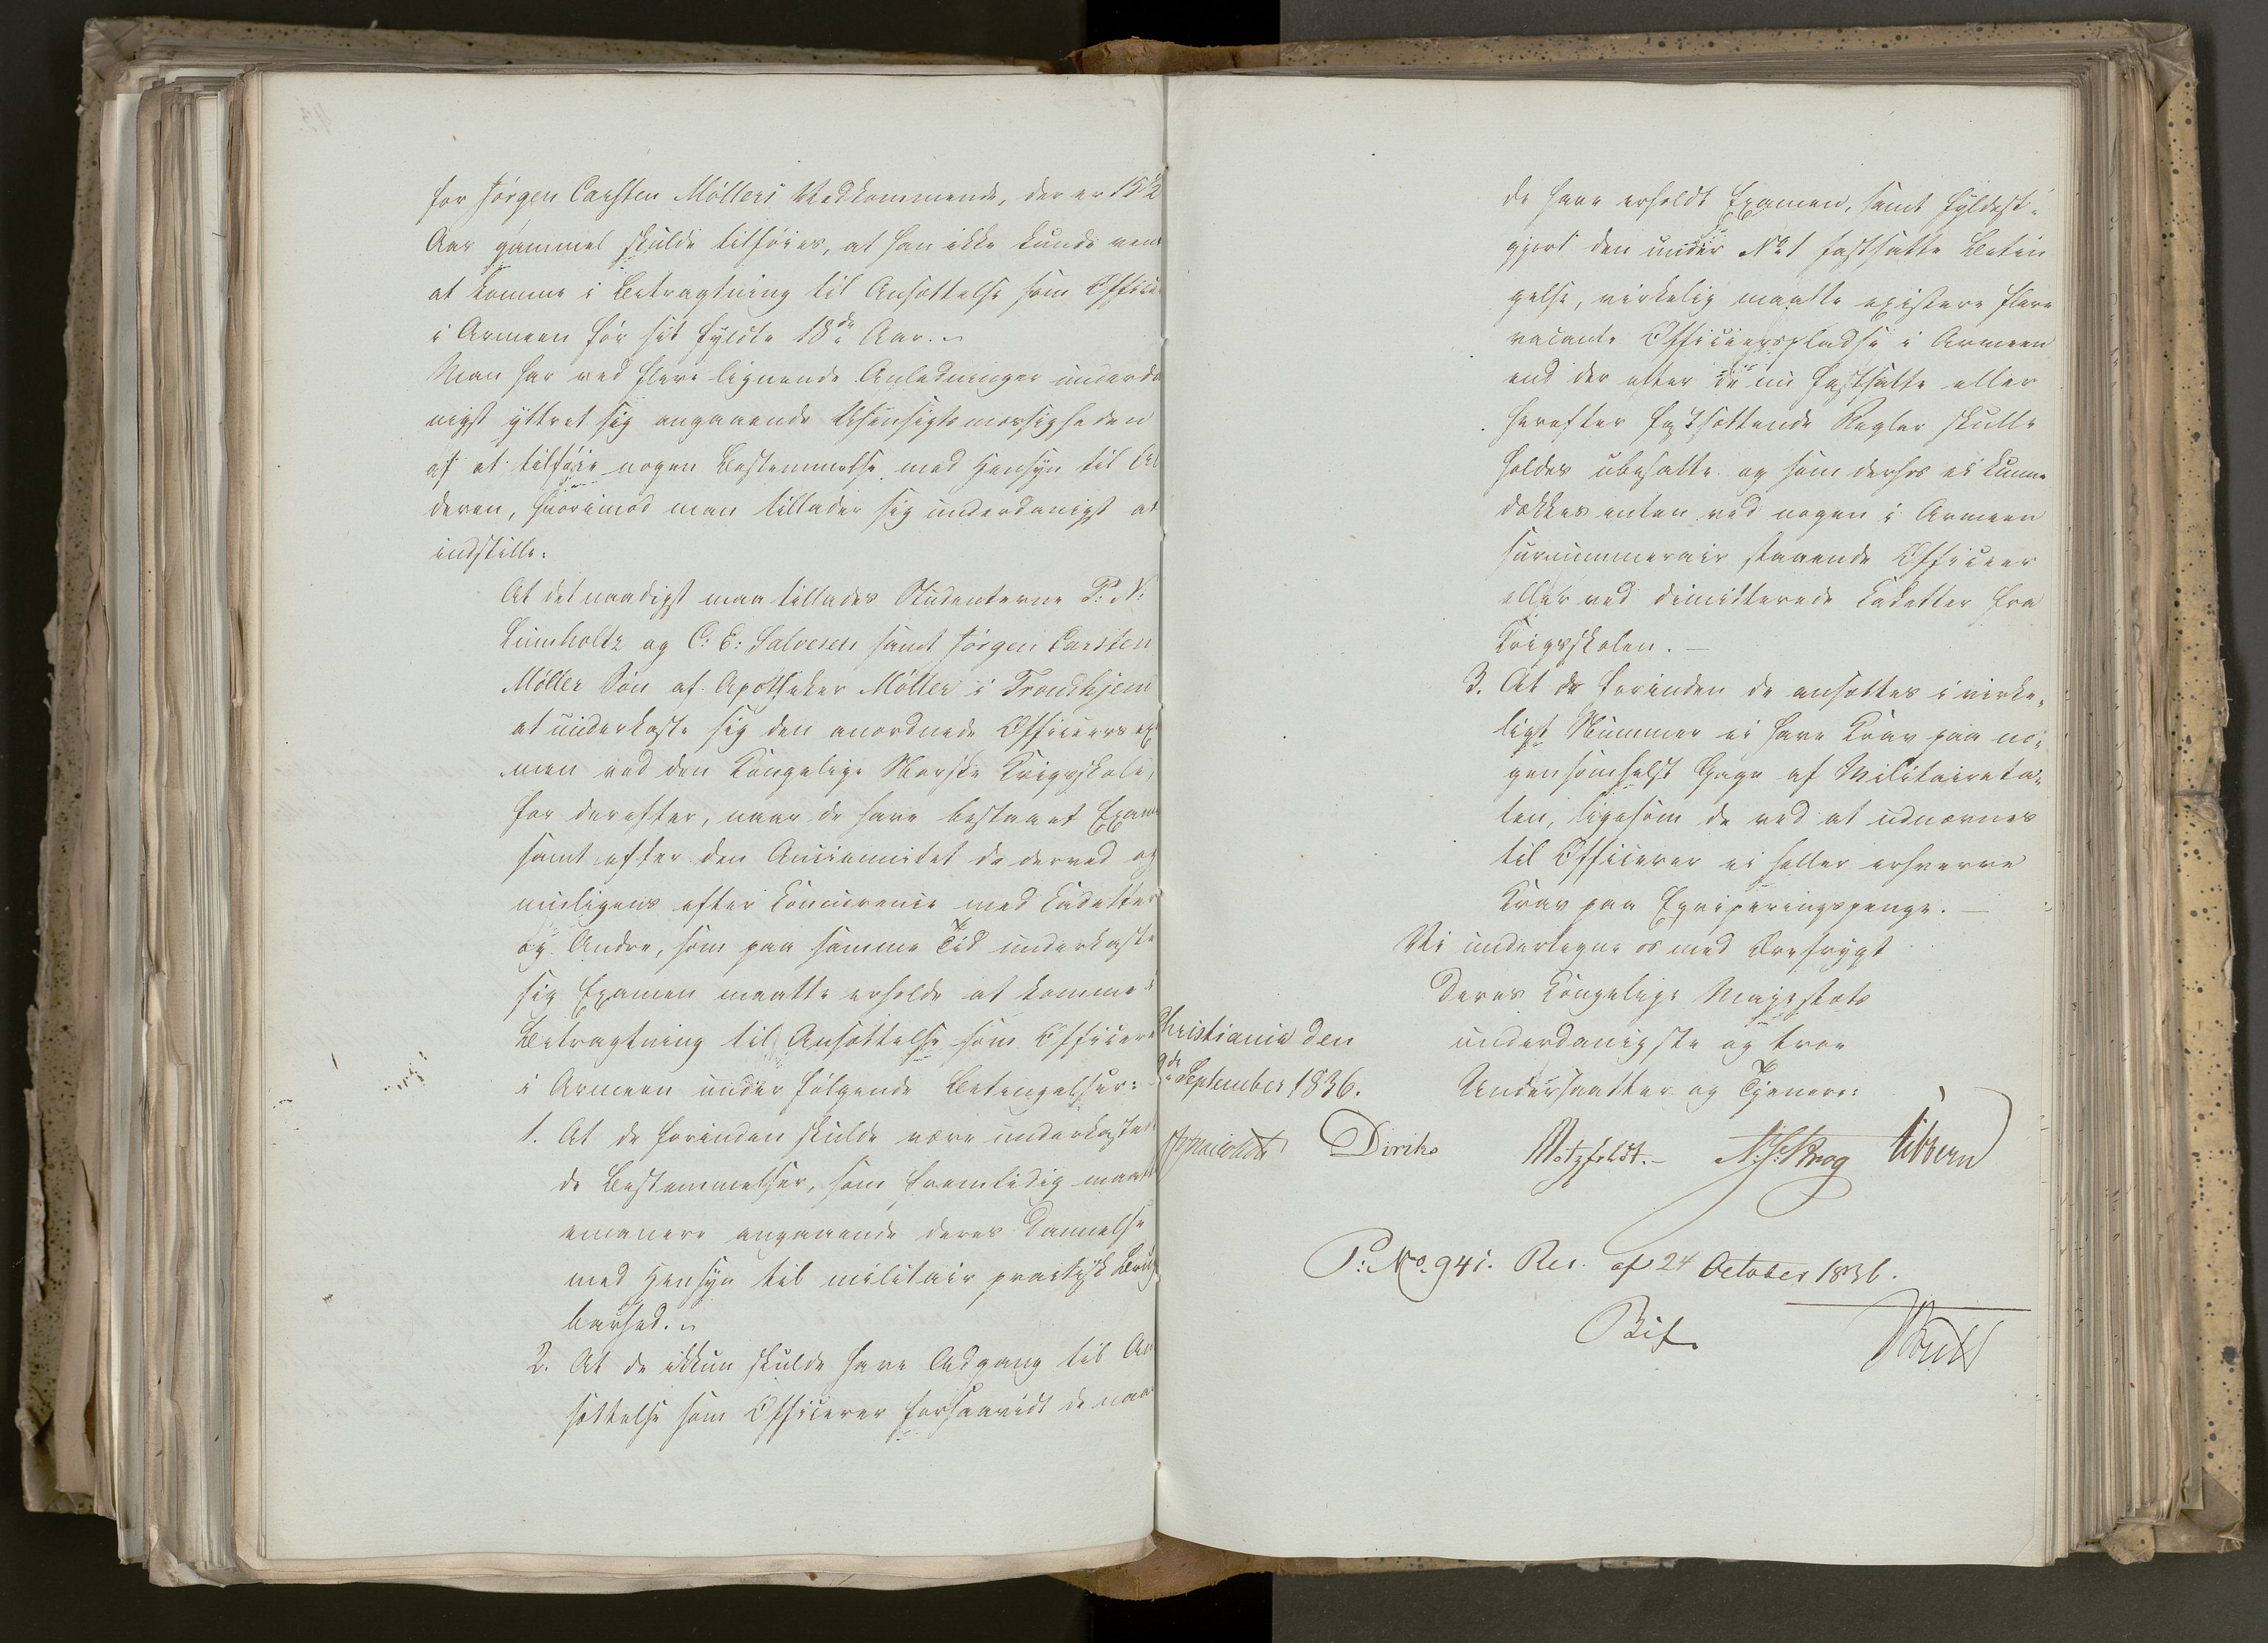 for Jørgen Carsten Møllers Vedkommende, der er 15½
Aar gammel skulde tilføies, at han ikke kunde vente
at komme i Betragtning til Ansættelse som Officier
i Armeen før sit fyldte 18de Aar.
Man har ved flere lignende Anledninger underda
nigst yttret sig angaaende Uhensigtsmæssigheden
af at tilføie nogen Bestemmelse med Hensyn til Al
deren, hvorimod man tillader sig underdanigst at
indstille:
At det naadigst maa tillades Studenterne P: N:
Lumholtz og C: E: Salvesen samt Jørgen Carsten
Møller Søn af Apotheker Møller i Trondhjem
at underkaste sig den anordnede Officiersexa
men ved den Kongelige Norske Krigsskole,
for derefter, naar de have bestaaet Examen
samt efter den Anciennitet de derved og
muligens efter Concurence med Cadetter
og Andre, som paa samme Tid underkaste
sig Examen maatte erholde at komme i
Betragtning til Ansættelse som Officierer
i Armeen under følgende Betingelser:
1. At de forinden skulde være underkastede
de Bestemmelser, som fremtidig maatte
emanere angaaende deres Dannelse
med Hensyn til militair practisk Brug
barhed.
2. At de ikkun skulde have Adgang til An
sættelse som Officerer forsaavidt de naar
de have erholdt Examen, samt fyldest-
gjort den under No 1 fastsatte Betin
gelse, virkelig maatte existere flere
vacante Officierspladse i Armeen
end der efter de nu fastsatte eller
herefter fastsættende Regler skulle
holdes ubesatte og som derhos ei kunne
dækkes enten ved nogen i Armeen
surnummerair staaende Officier
eller ved dimitterede Cadetter fra
Krigsskolen. —
3. At de forinden de ansættes i virke-
ligt Nummer ei have Krav paa no-
gensomhelst Gage af Militaireta-
ten, ligesom de ved at udnævnes
til Officierer ei heller erhverve
Krav paa Eqviperingspenge. —
Vi undertegne os med Ærefrygt
Deres Kongelige Majestæts
Christiania den underdanigste og troe
9de September 1836. Undersaatter og Tjenere:
Diriks Motzfeldt. — Krog Sibbern
P: No. 941. Res. af 24 October 1836.
Bif.